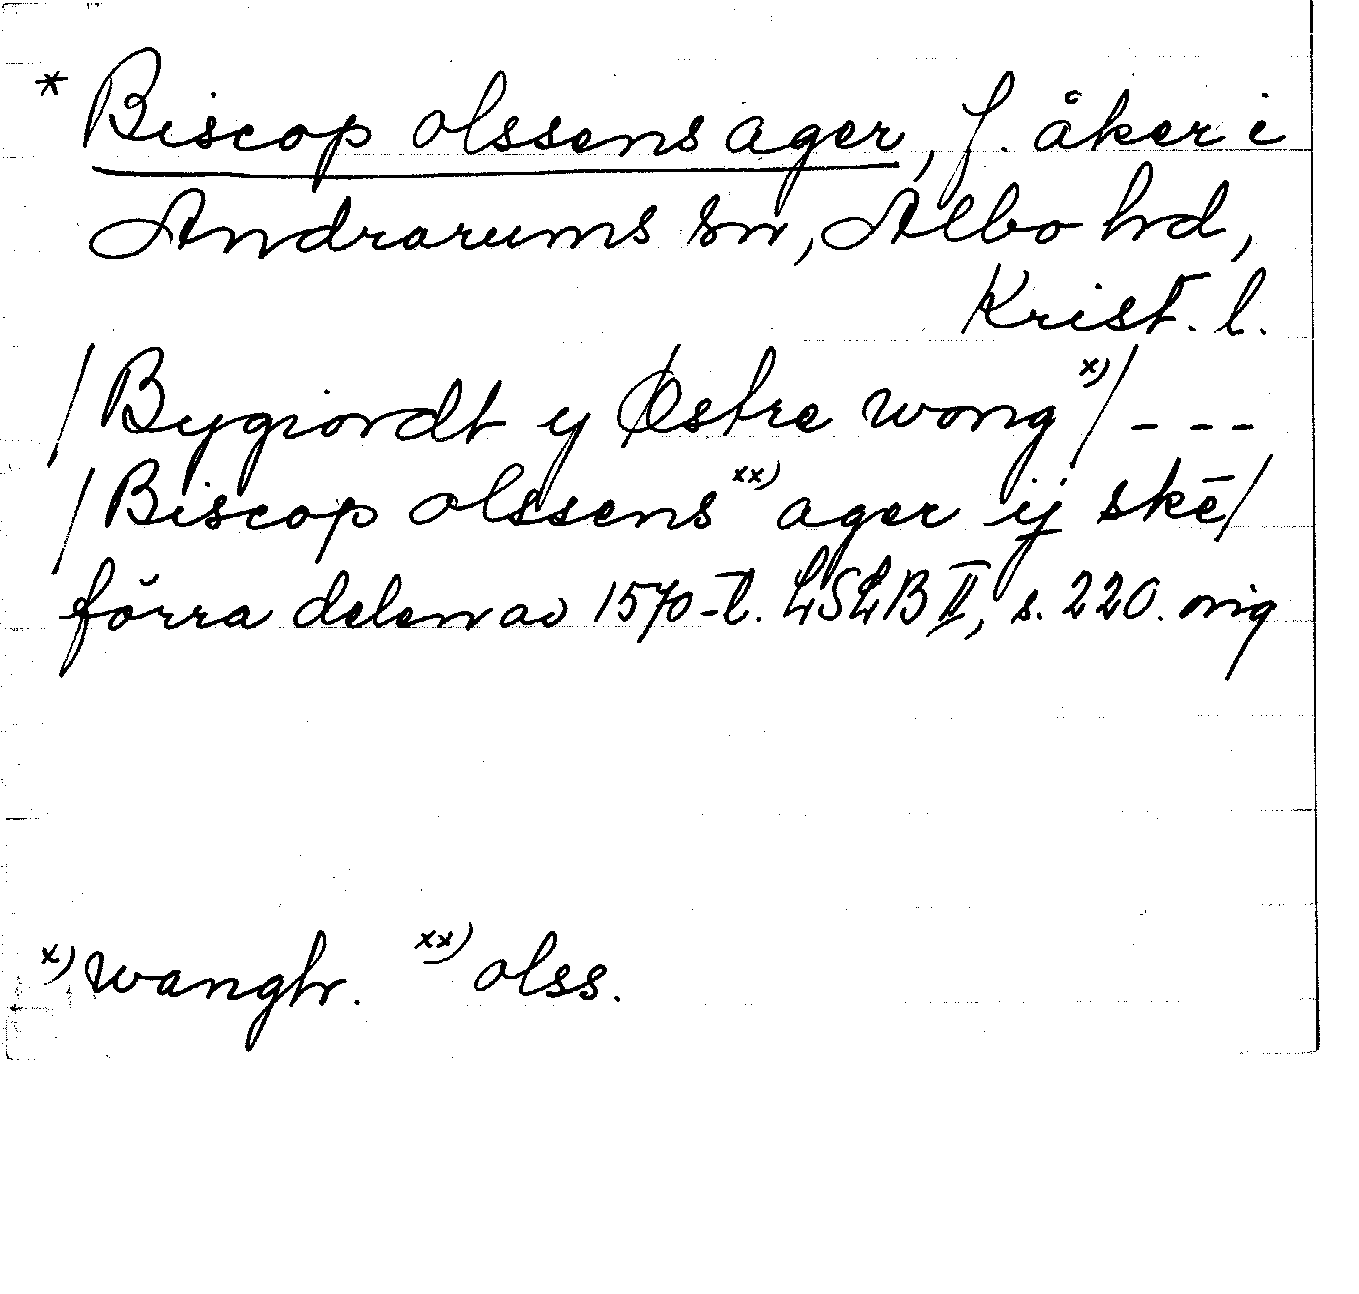 * Biscop olssens ager, f. åker i
Andrarums sn, Albo hd,
Krist. l.
/Bygiordt y Østre wong x)/ - - -
/Biscop olssens xx) ager ij skē/
förra delen av 1570-t. LSLB II, s. 220. orig
x) wangh. xx) olss.